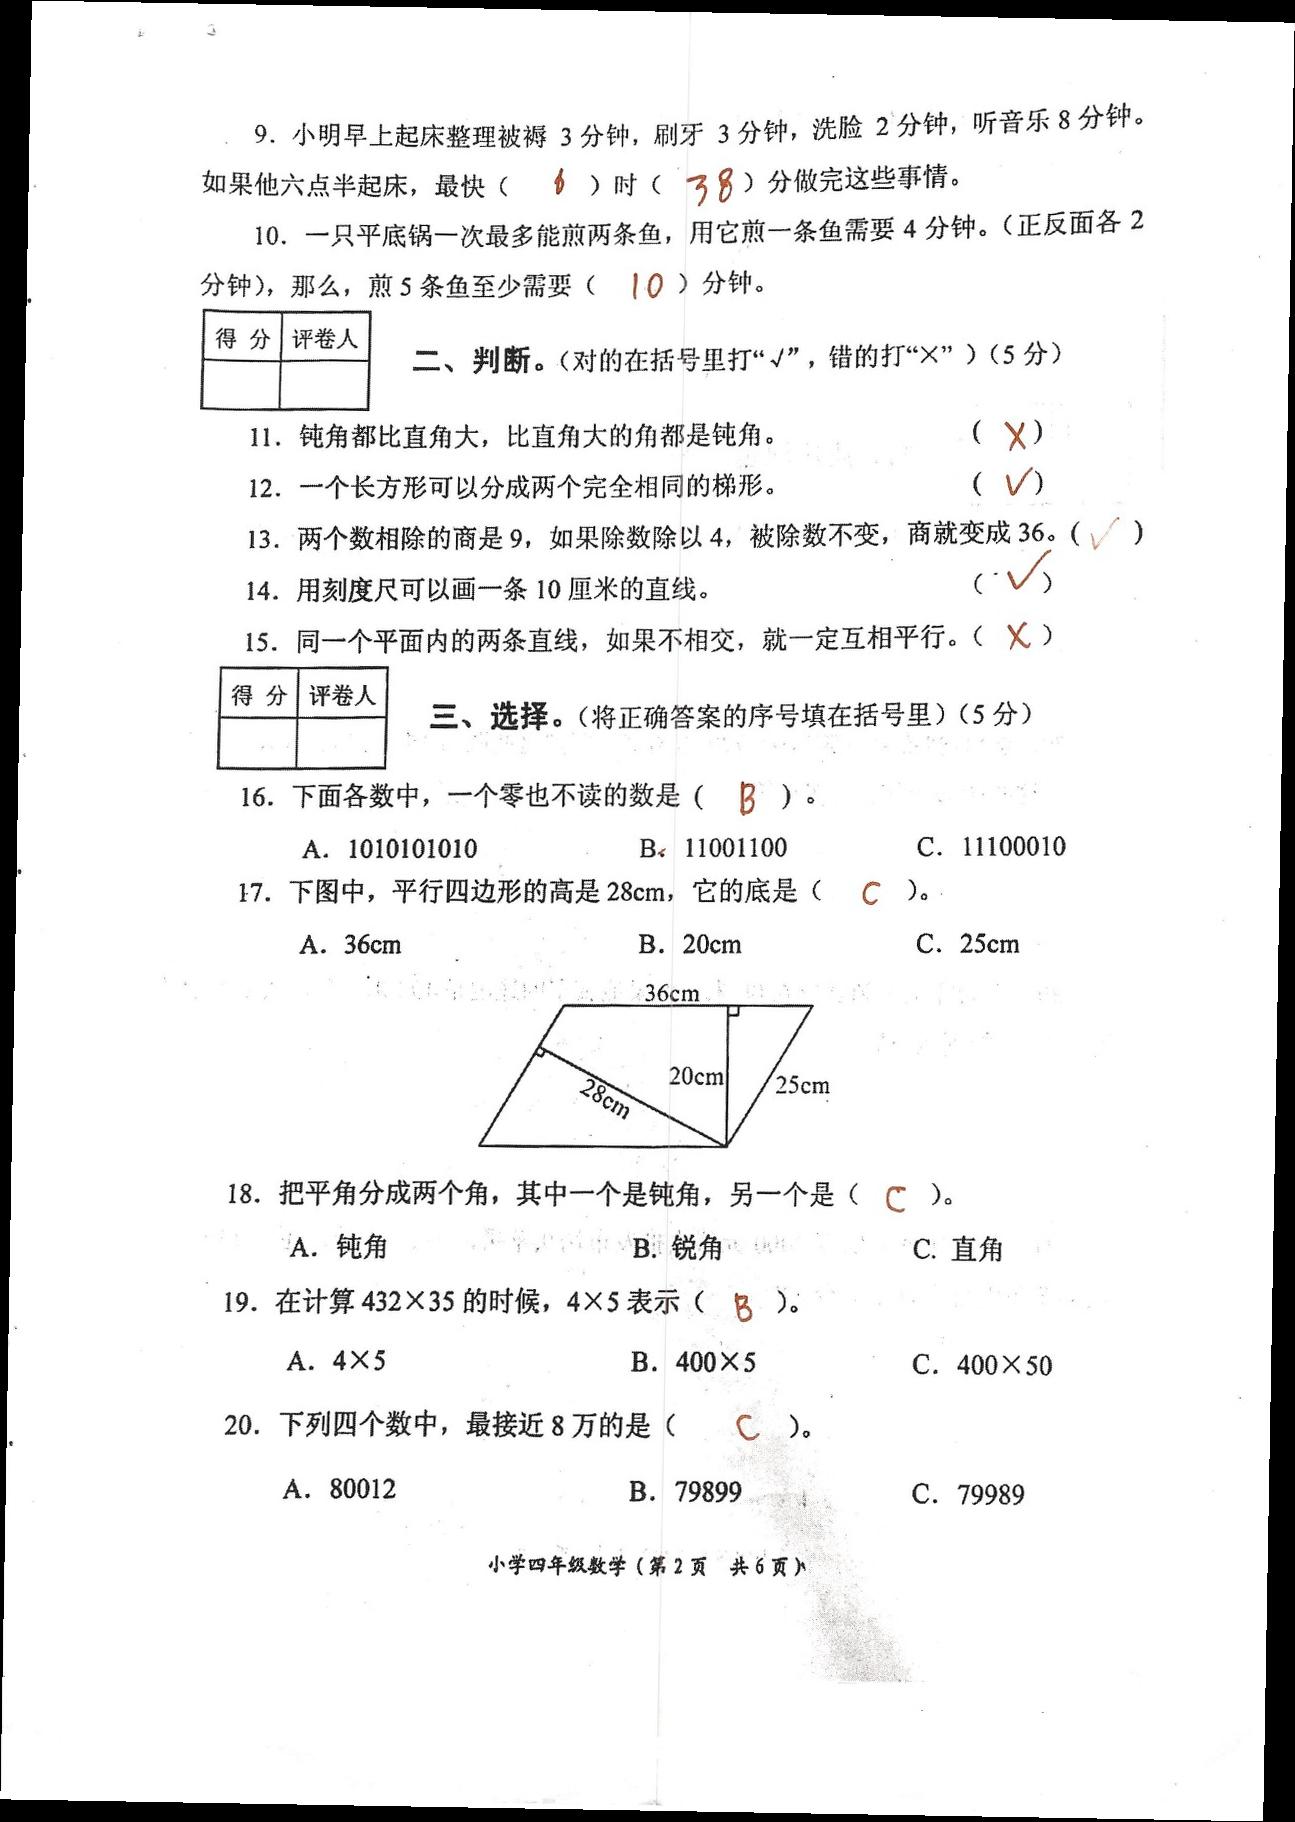 9．小明早上起床整理被褥 3 分钟，刷牙 3 分钟，洗脸 2 分钟，听音乐 8 分钟。
如果他六点半起床，最快（ 6 ）时（ 38 ）分做完这些事情。
10．一只平底锅一次最多能煎两条鱼，用它煎一条鱼需要 4 分钟。（正反面各 2
分钟），那么，煎 5 条鱼至少需要（ 10 ）分钟。
得 分 评卷人
二、判断。（对的在括号里打“√”，错的打“×”）（5 分）
11．钝角都比直角大，比直角大的角都是钝角。（ X ）
12．一个长方形可以分成两个完全相同的梯形。（ √ ）
13．两个数相除的商是 9，如果除数除以 4，被除数不变，商就变成 36。（ √ ）
14．用刻度尺可以画一条 10 厘米的直线。（ √ ）
15．同一个平面内的两条直线，如果不相交，就一定互相平行。（ X ）
得 分 评卷人
三、选择。（将正确答案的序号填在括号里）（5 分）
16．下面各数中，一个零也不读的数是（ B ）。
A．1010101010 B．11001100 C．11100010
17．下图中，平行四边形的高是 28cm，它的底是（ C ）。
A．36cm B．20cm C．25cm
36cm
20cm
28cm
25cm
18．把平角分成两个角，其中一个是钝角，另一个是（ C ）。
A．钝角 B. 锐角 C. 直角
19．在计算 432×35 的时候，4×5 表示（ B ）。
A．4×5 B．400×5 C．400×50
20．下列四个数中，最接近 8 万的是（ C ）。
A．80012 B．79899 C．79989
小学四年级数学（第 2 页 共 6 页）